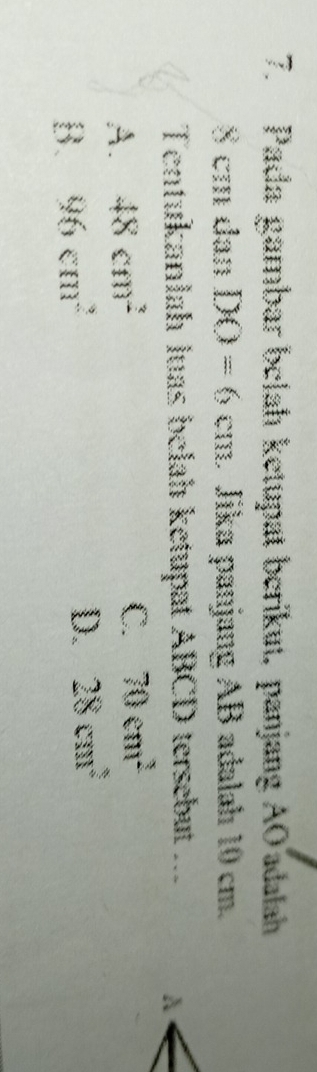 7. Pada gambar belah ketupat berikut, panjang AO adalah
8 cm dan DO = 6 cm. Jika panjang AB adalah 10 cm.
Tentukanlah luas belah ketupat ABCD tersebut ...
A. 48 cm² C. 70 cm²
B. 96 cm² D. 28 cm²
A